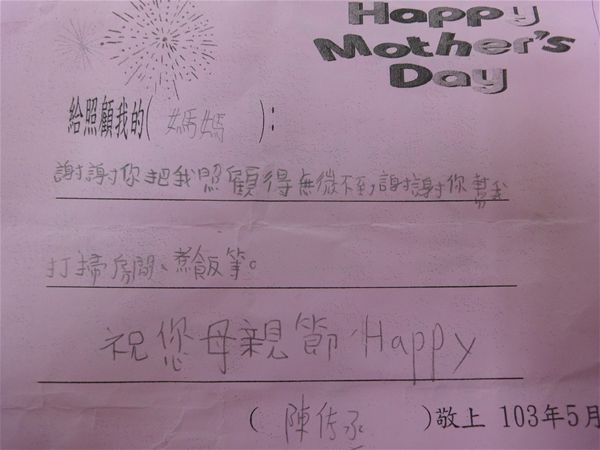 Happy
Mother's
Day
給照顧我的( 媽媽 ):
謝謝你把我照顧得無微不至,謝謝你幫我
打掃房間、煮飯等。
祝您母親節Happy
( 陳传承 )敬上 103年5月